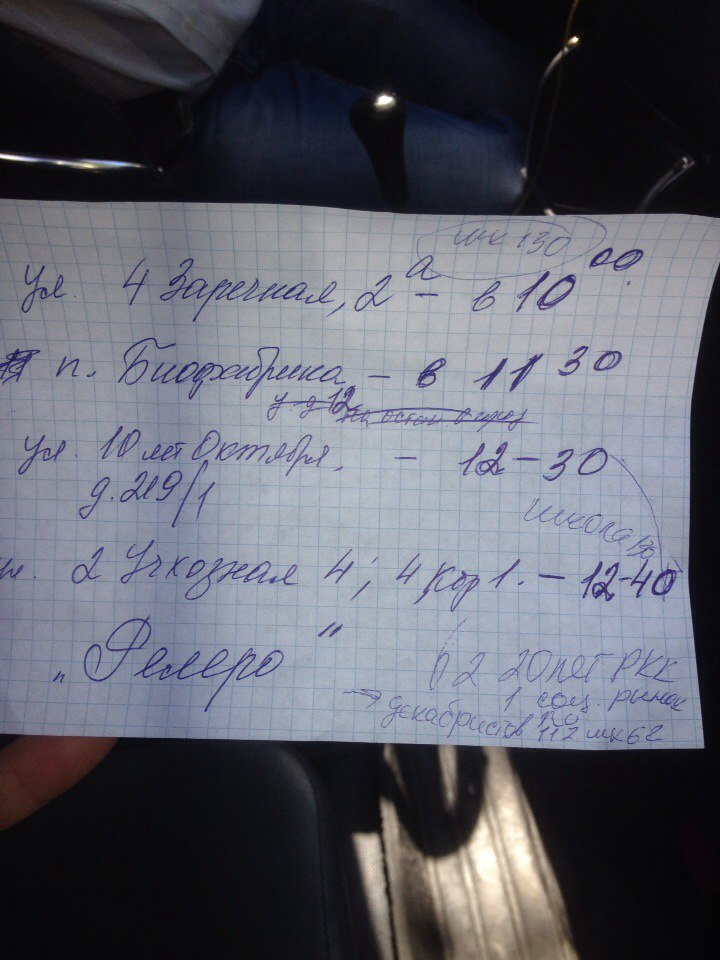 шк 130
ул. 4 Заречная, 2а - в 10 00
п. Биофабрика - в 11 30
у д 12 на остан
ул. 10 лет Октября, - 12-30
д. 219/1
школа 130
2 Учхозная 4; 4 кор 1. - 12-40
„Релеро"
62 20 лет РКК
1 соц. рынок
→ декабристов 112 шк 62